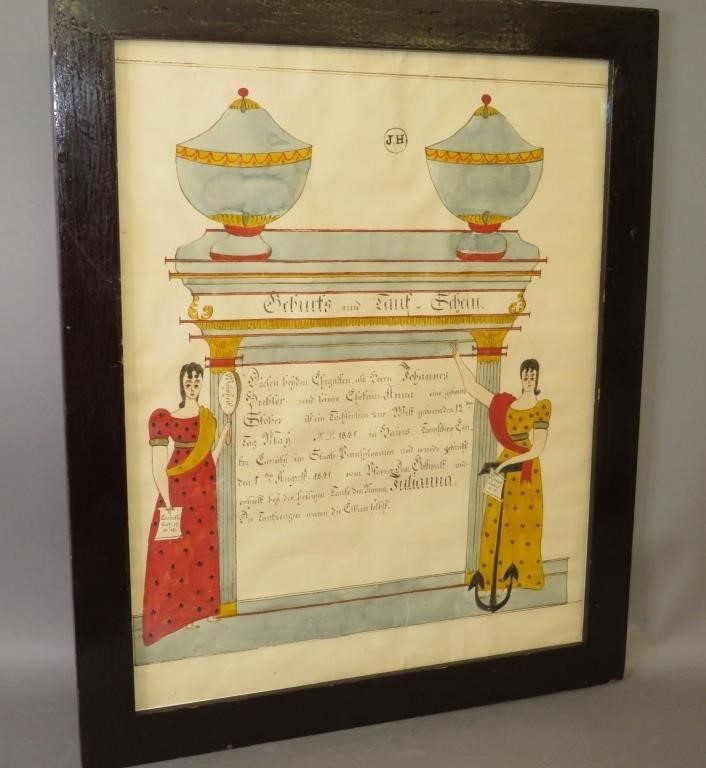 J.H
Geburts und Tauf-Schein.
Diesen beyden Ehegatten als Herrn Johannes
Hubler und seiner Ehefrau Anna eine geborne
Stober ist ein Töchterlein zur Welt geboren den 12ten
Tag May A.D. 1841 in Hains Taunschip Cen-
tre Caunty im Staate Pennsylvanien und wurde getauft
den 1ten August 1841 vom Pfarrer Dan. Gottwalt und
erhielt bey der heiligen Taufe den Namen Julianna.
Die Taufzeugen waren die Eltern selbst.